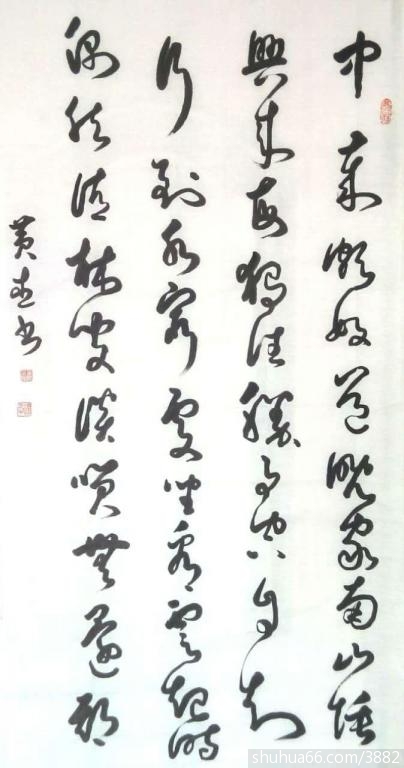 中岁颇好道晚家南山陲
興来每獨往勝事空自知
行到水窮處坐看雲起時
偶然值林叟談笑無還期
黄
书
shuhua66.com/3882